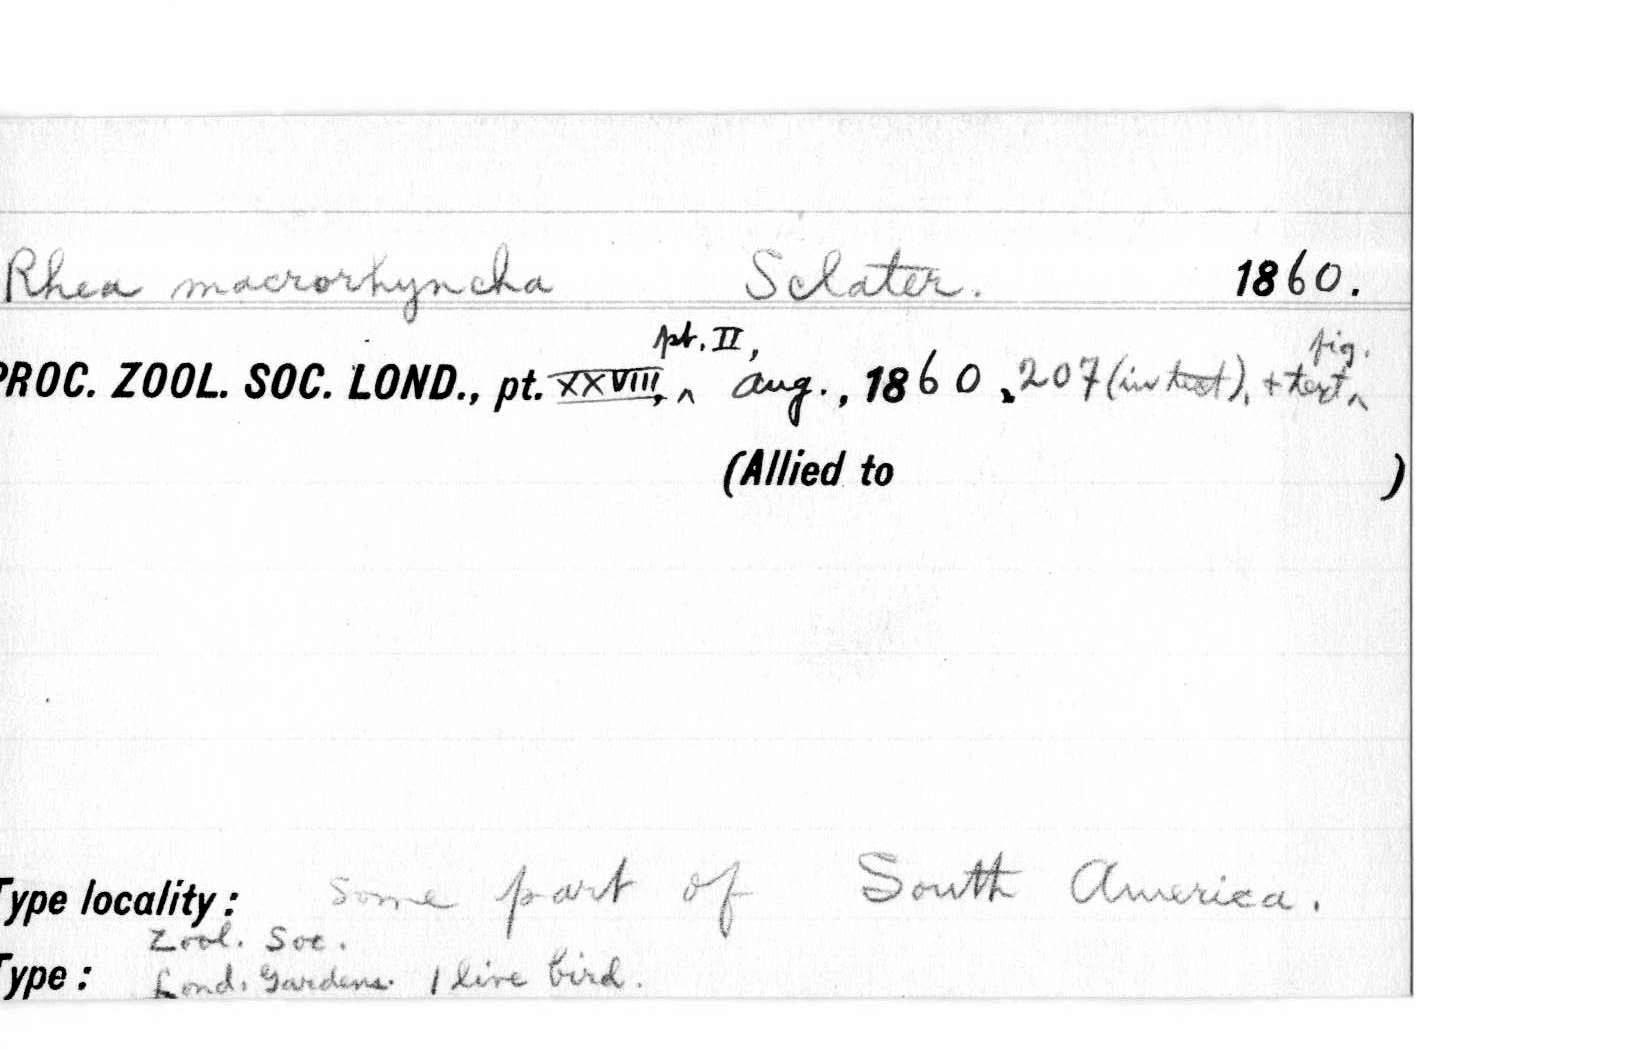 Rhea macrorhyncha Sclater. 1860.
pt. II, fig.
PROC. ZOOL. SOC. LOND., pt. XXVIII, ^ Aug., 1860, 207 (in text), + text ^
(Allied to )
Type locality: Some part of South America.
Zool. Soc.
Type: Lond. Gardens. 1 live bird.